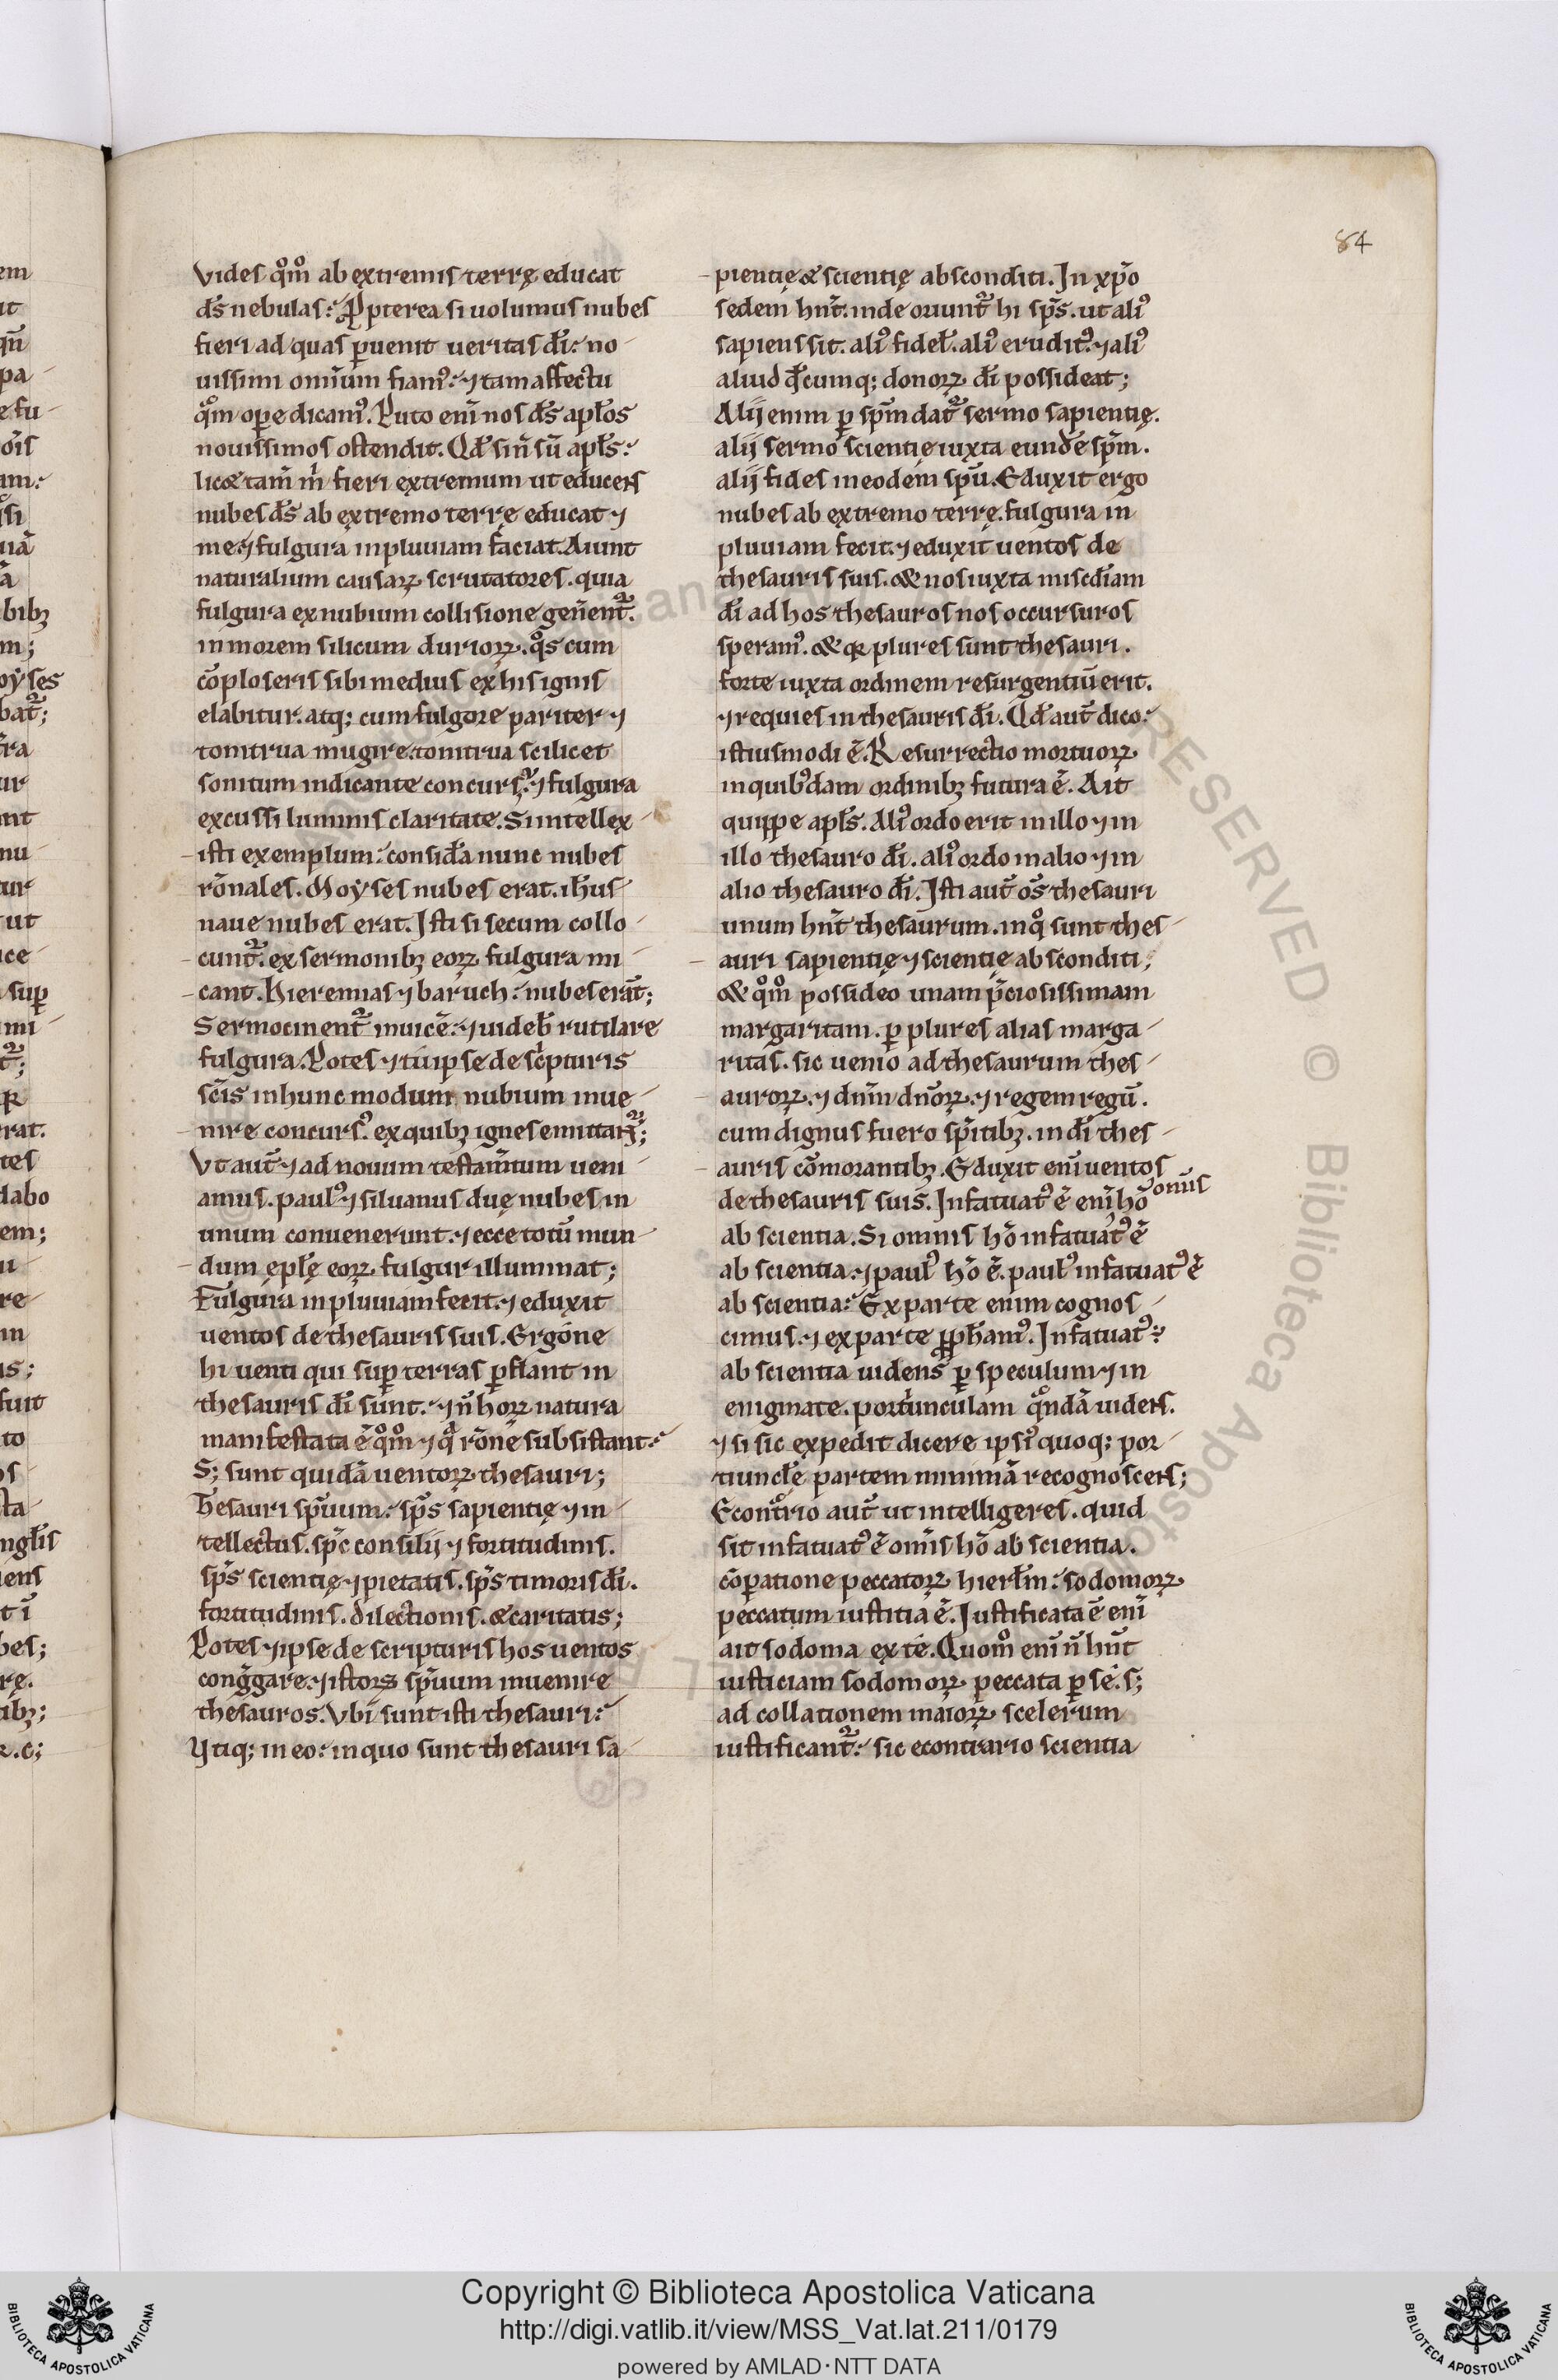 84
Vides qͦmͦ ab extremis terrę educat
d̄s nebulas: Ꝓpterea si uolumus nubes
fieri ad quas ꝑuenit ueritas dī: no
uissimi omnium fiamꝰ: ⁊ tam affectu
qͦm opere dicamꝰ. Puto enī nos d̄s apl̄os
nouissimos ostendit. Qd̄ sin̄ sū apl̄s:
licet tam̄ m̄ fieri extremum ut educens
nubes d̄s ab extremo terrę educat ⁊
me. ⁊ fulgura in pluuiam faciat. Aiunt
naturalium causaꝝ scrutatores. quia
fulgura ex nubium collisione gen̄ent᷑.
in morem silicum durioꝝ. qͦs cum
cōploseris sibi medius ex his ignis
elabitur. atq; cum fulgore pariter ⁊
tonitrua mugire. tonitrua scilicet
sonitum indicante concursꝰ. ⁊ fulgura
excussi luminis claritate. Si intellex
isti exemplum: consid̄a nunc nubes
rōnales. Moyses nubes erat. ih̄us
naue nubes erat. Isti si secum collo
cunt᷑. ex sermonibꝫ eoꝝ fulgura mi
cant. Hieremias ⁊ baruch: nubes erāt;
Sermocinent᷑ inuicē: ⁊ uideb̄ rutilare
fulgura. Potes ⁊ tu ipse de sc̄pturis
sc̄is in hunc modum nubium inue
nire concursꝰ. ex quibꝫ ignes emittant᷑;
Vt aut̄ ⁊ ad nouum testam̄tum ueni
amus. paulꝰ ⁊ siluanus duę nubes in
unum conuenerunt. ⁊ ecce totū mun
dum epl̄ę eoꝝ fulgur illuminat;
Fulgura in pluuiam fecit. ⁊ eduxit
uentos de thesauris suis. Ergone
hi uenti qui suꝑ terras ꝑflant in
thesauris dī sunt. ⁊ n̄ hoꝝ natura
manifestata ē qͦmͦ ⁊ qͣ rōne subsistant:
S; sunt quidā uentoꝝ thesauri;
Thesauri spūum: sp̄s sapientię ⁊ in
tellectus. sp̄c consilij ⁊ fortitudinis.
sp̄s scientię ⁊ pietatis. sp̄s timoris dī.
fortitudinis. dilectionis. & caritatis;
Potes ⁊ ipse de scripturis hos uentos
conḡgare. ⁊ istoꝝ spūum inuenire
thesauros. Vbi sunt isti thesauri:
Vtiq; in eo: in quo sunt thesauri sa
pientię & scientię absconditi. In xp̄o
sedem hn̄t. inde oriunt᷑ hi sp̄s. ut aliꝰ
sapiens sit. aliꝰ fidel̄. aliꝰ eruditꝰ. ⁊ aliꝰ
aliud qd̄cumq; donoꝝ dī possideat;
Alij enim ꝑ sp̄m dat᷑ sermo sapientię.
alij sermo scientię iuxta eundē sp̄m.
alij fides in eodem spū. Eduxit ergo
nubes ab extremo terrę. fulgura in
pluuiam fecit. ⁊ eduxit uentos de
thesauris suis. & nos iuxta misc̄diam
dī ad hos thesauros nos occursuros
speramꝰ. & qꝛ plures sunt thesauri.
forte iuxta ordinem resurgentiū erit.
⁊ requies in thesauris dī. Qd̄ aut̄ dico:
istiusmodi ē. Resurrectio mortuoꝝ
in quibꝰdam ordinibꝫ futura ē. Ait
quippe apl̄s. Aliꝰ ordo erit in illo ⁊ in
illo thesauro dī. aliꝰ ordo in alio ⁊ in
alio thesauro dī. Isti aut̄ os̄ thesauri
unum hn̄t thesaurum. in qͦ sunt thes
auri sapientię ⁊ scientię absconditi;
& qͦmͦ possideo unam p̄ciosissimam
margaritam. ꝑ plures alias marga
ritas. sic uenio ad thesaurum thes
auroꝝ. ⁊ dn̄m dn̄oꝝ. ⁊ regem regū.
cum dignus fuero sp̄itibꝫ. in dī thes
auris cōmorantibꝫ. Eduxit enī uentos
de thesauris suis. Infatuatꝰ ē enī hō omīs
ab scientia. Si omnis hō infatuatꝰ ē
ab scientia. ⁊ paulꝰ hō ē. paulꝰ infatuatꝰ ē
ab scientia: Ex parte enim cognos
cimus. ⁊ ex parte ꝓph̄amꝰ. Infatuatꝰ
ab scientia uidens ꝑ speculum ⁊ in
enigmate. portiunculam qͦndā uidens.
⁊ si sic expedit dicere ipsiꝰ quoq; por
tiuncl̄e partem minimā recognoscens;
Econtͣrio aut̄ ut intelligeres. quid
sit infatuatꝰ ē om̄is hō ab scientia.
cōꝑatione peccatoꝝ hierl̄m: sodomoꝝ
peccatum iustitia ē. Iustificata ē enī
ait sodoma ex te. Quomͦ enī n̄ hn̄t
iusticiam sodomoꝝ peccata ꝑ se. s;
ad collationem maioꝝ scelerum
iustificant᷑: sic econtrario scientia
Copyright © Biblioteca Apostolica Vaticana
http://digi.vatlib.it/view/MSS_Vat.lat.211/0179
powered by AMLAD·NTT DATA